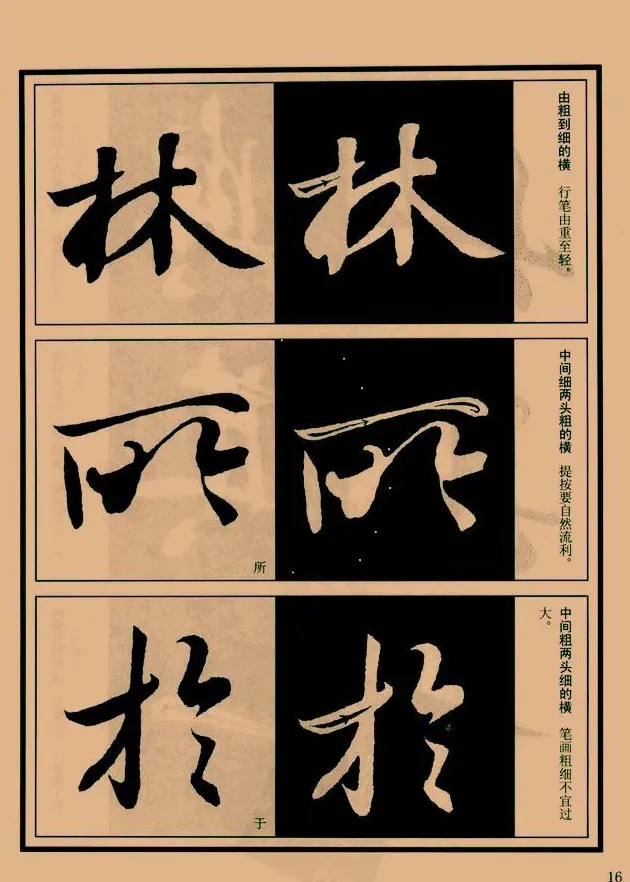 由粗到细的横 行笔由重至轻。
林
林
中间细两头粗的横 提按要自然流利。
所
所
所
中间粗两头细的横 笔画粗细不宜过
大。
於
於
于
16